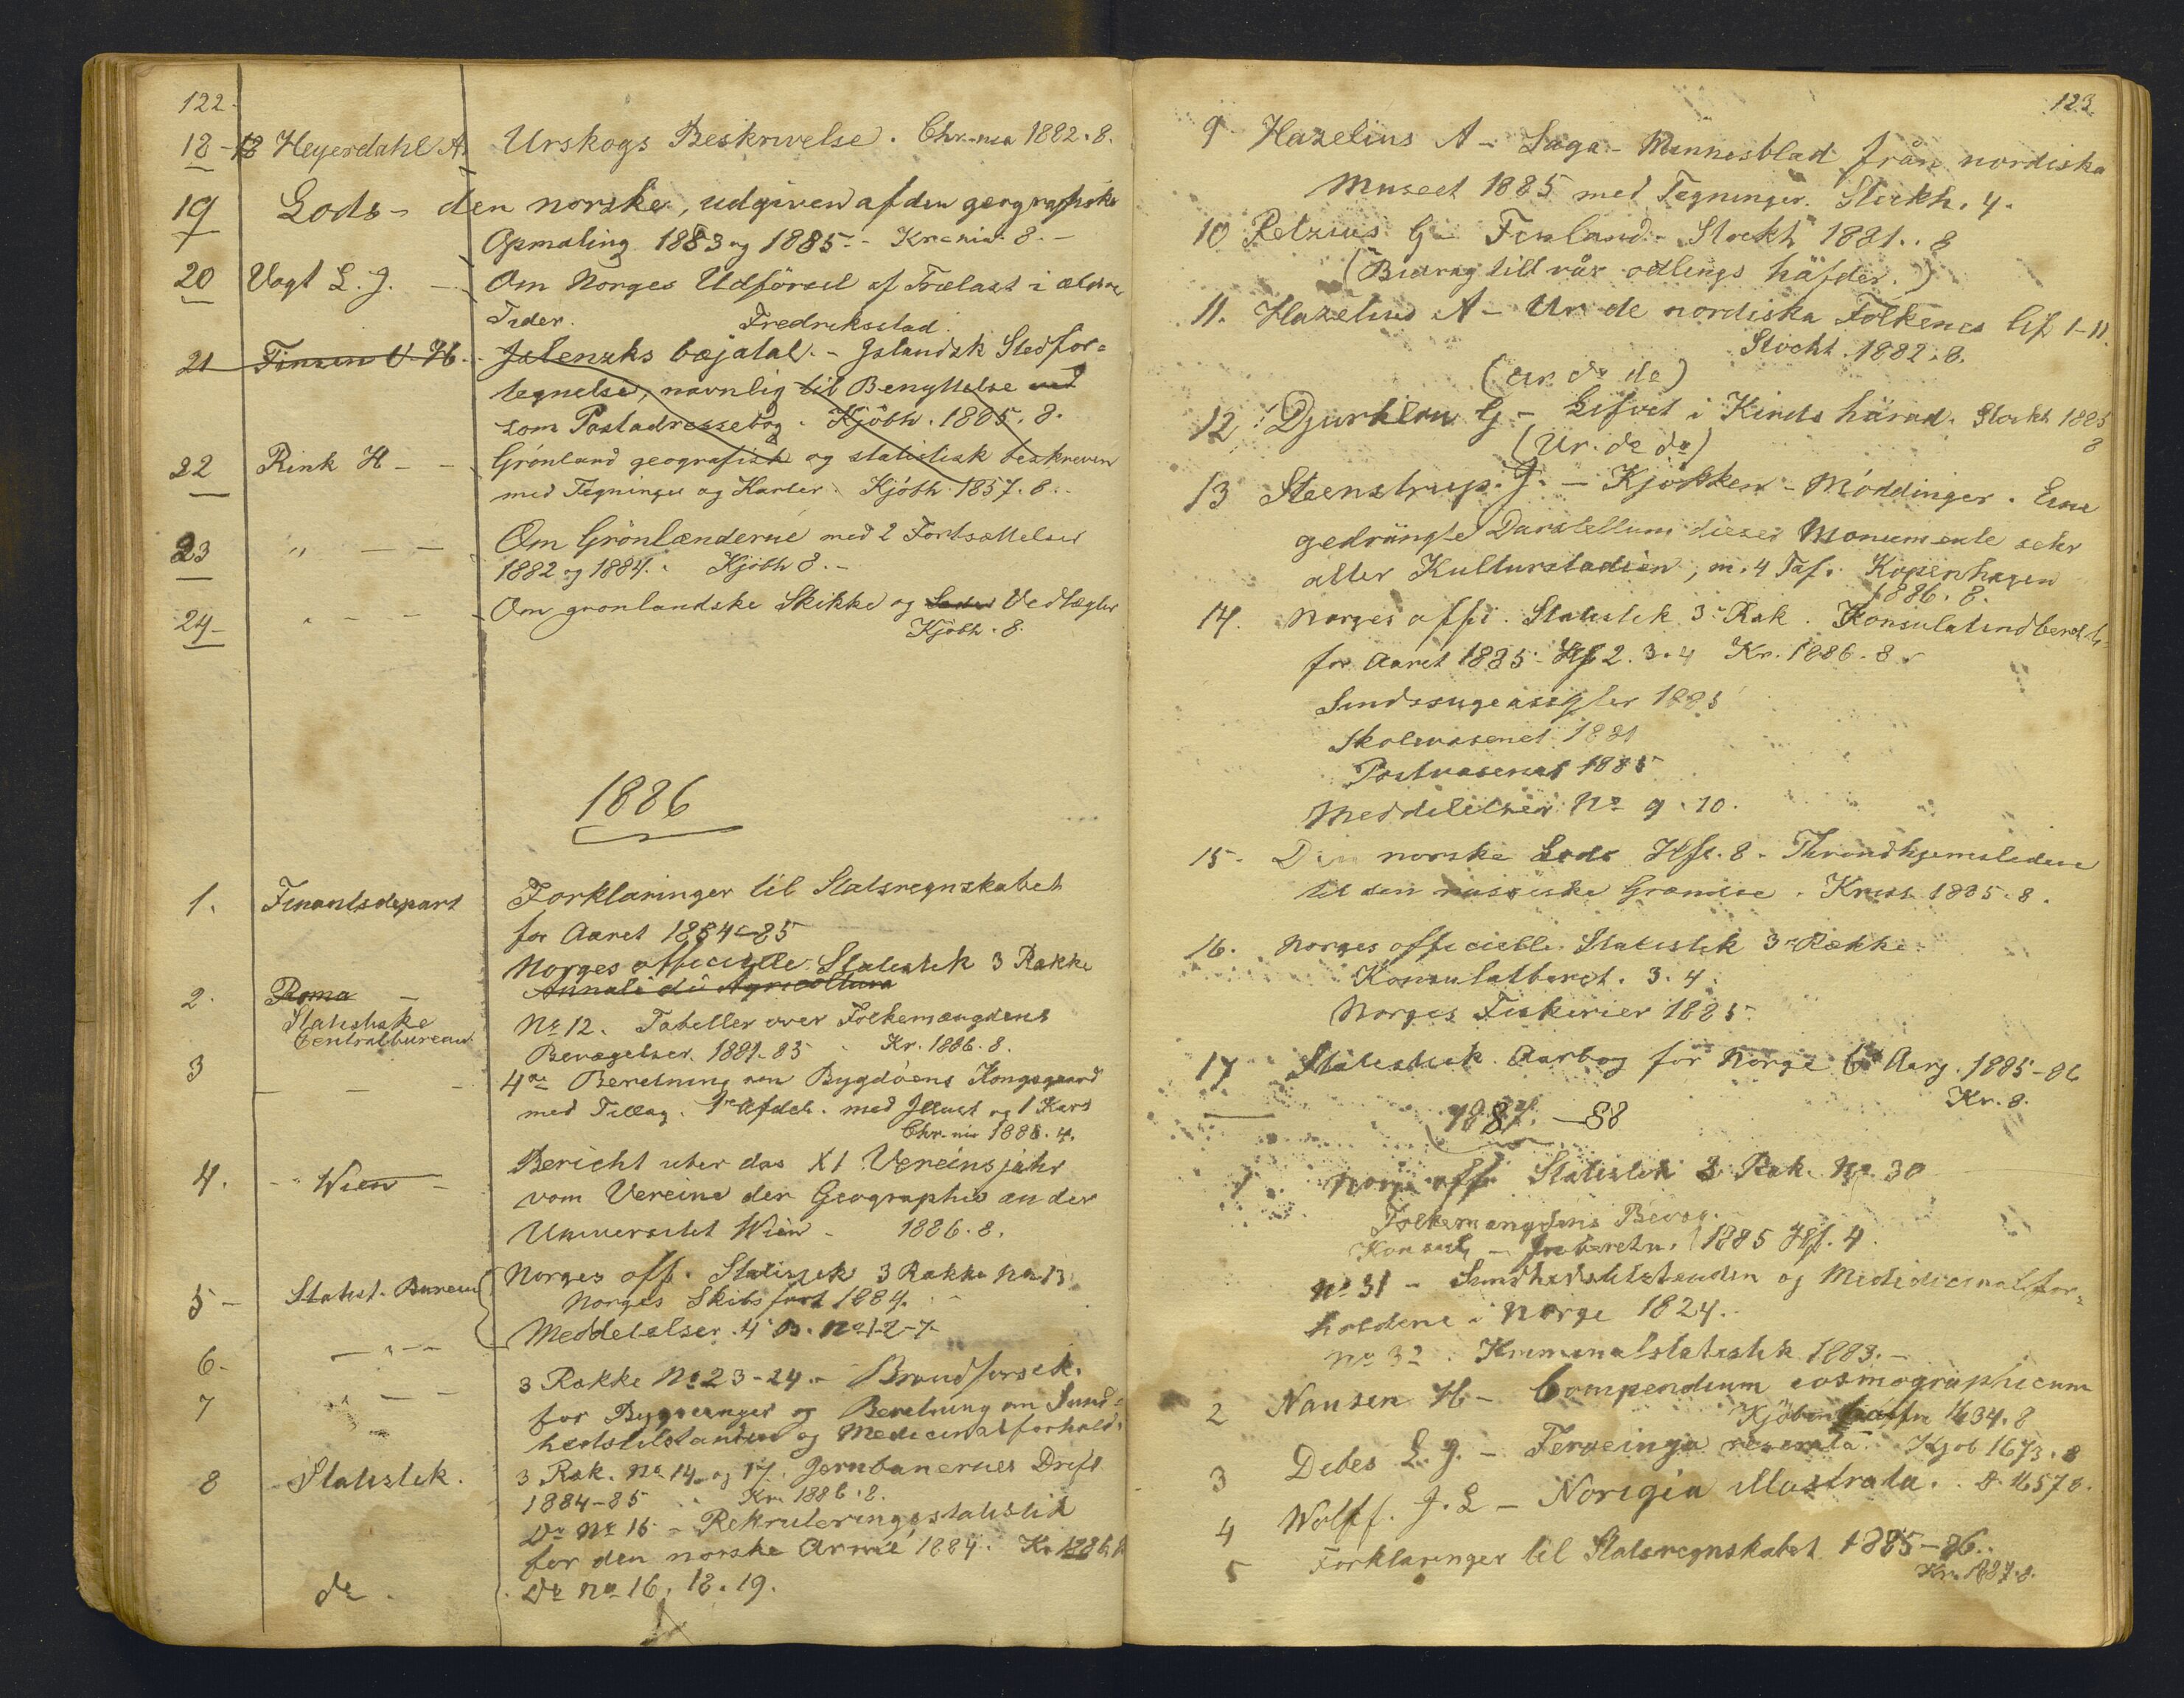 122.
18 - 18 Heyerdahl A. Urskogs Beskrivelse. Chr.-nia 1882. 8.
19 Lods - den norske, udgiven af den geografiske
Opmaling 1883 og 1885. - Kr-ania 8. -
20 Vogt L. J. - Om Norges Udförsel af Trælast i ældre
Tider. Fredriksstad.
21 Finsen V. H. - Islenzks bæjatal. - Islandsk Stedfor=
tegnelse, navnlig til Benyttelse ved
som Postadressebog. Kjöbh. 1885. 8.
22 Rink H - - Grönland geografisk og statistisk beskreven
med Tegninger og Karter. Kjöbh. 1857. 8.
23 " - - Om Grönlænderne med 2 Fortsættelser
1882 og 1884. Kjöbh 8. -
24 - " - - Om grönlandske Skikke og Vedtægter
Kjöbh. 8.
1886
1. Finantsdepart Forklaringer til Statsregnskabet
for Aaret 1884-85
Norges officielle Statistik 3 Række
2. Roma - Annali di Agricoltura
Statistiske
Centralbureau No 12. Tabeller over Folkemængdens
Bevægelser 1881-85 Kr. 1886. 8.
3 - - - 4de Beretning om Bygdöens Kongsgaard
med Tillæg. 1ste Afdel. med Illust og 1 Kart
Chr.-nia 1886. 4.
4. - Wien - Bericht uber das XI Vereinsjahr
vom Vereine der Geographie an der
Universitet Wien - 1886. 8.
5 - Statist. Bureau Norges off. Statistik 3 Række No 13
Norges Skibsfart 1884.
Meddelelser. 4 B. No 1-2-7-
6. - " - - 3 Række No 23-24. - Brandforsik.
7 " - - for Bygninger og Beretning om Sund=
hedstilstanden og Medicinalforhold.
8 - Statistik. 3 Ræk. No 14 og 17. Jernbanernes Drift
1884-85 Kr. 1886. 8.
Do No 15 - Rekruteringsstatistik
for den norske Armé 1884. Kr 1886. 8
do. Do No 16. 18. 19.
123
9 Hazelius A - Saga - Minnesblad från nordiska
Museet 1885 med Tegninger. Stockh. 4.
10 Retzius G - Finland - Stockh 1881. 8
(Bidrag till vår odlings häfder.)
11. Hazelius A - Ur de nordiska Folkenes lif 1-11.
Stockh. 1882. 8.
(Ur do do)
12. Djurklou G - Lifvet i Kinds härad. Stockh 1885
8
(Ur. do do)
13 Steenstrup. J. - Kjökken-Möddinger. Eine
gedrängte Darstellung dieser Monumente sehr
alter Kulturstadien, m. 4 Taf. Kopenhagen
1886. 8.
14. Norges offi. Statistik 3. Ræk. Konsulatindberetn.
for Aaret 1885 - Hf 2. 3. 4 Kr. 1886. 8
Sindssygeasyler 1885
Skolevæsenet 1881
Postvæsenet 1885
Meddelelser No 9. 10.
15. Den norske Lods Hft. 8 - Throndhjemsleden
til den russiske Grændse. Krist. 1885. 8.
16. Norges officielle Statistik 3die Række
Konsulatberet. 3. 4.
Norges Fiskerier 1885.
17 Statistisk Aarbog for Norge 6te Aarg. 1885-86
Kr. 8.
1887. - 88
1 Norges offi Statistik 3. Ræk. No 30
Folkemængdens Bevæg.
Konsul - Indberetn. 1885 Hf. 4.
No 31 - Sundhedstilstanden og Medidicinalfor=
holdene i Norge 1824.
No 32. Kriminalstatistik 1883. -
2 Nansen H - Compendium cosmographicum
Kjöbenhafn 1634. 8
3 Debes L. J. - Feroeinga reserata. Kjöb 1673. 8
4 Wolff. J. L - Norigia illustrata. 8.
5 Forklaringer til Statsregnskabet 1885-86.
Kr. 1887. 8.